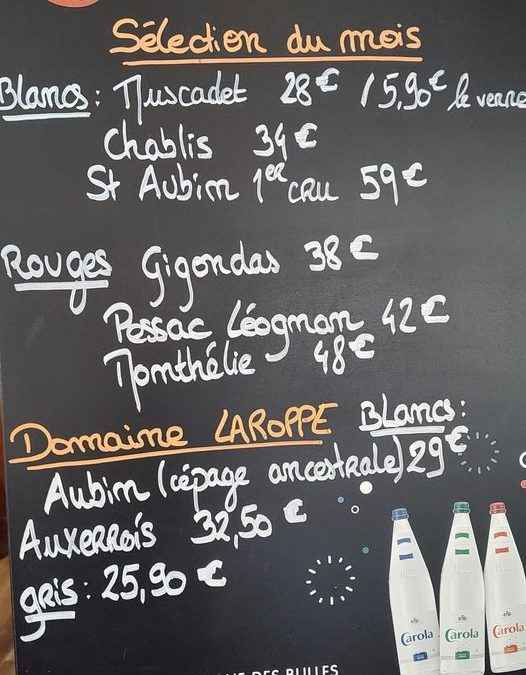 Sélection du mois
Blancs : Muscadet 28€ / 5,90€ le verre
Chablis 34€
St Aubin 1er CRU 59€
Rouges Gigondas 38€
Pessac Léognan 42€
Monthélie 48€
Domaine LAROPPE Blancs :
Aubin (cépage ancestrale) 29€
AUXERROIS 32,50€
gris : 25,90€
Carola Carola Carola
DES BULLES